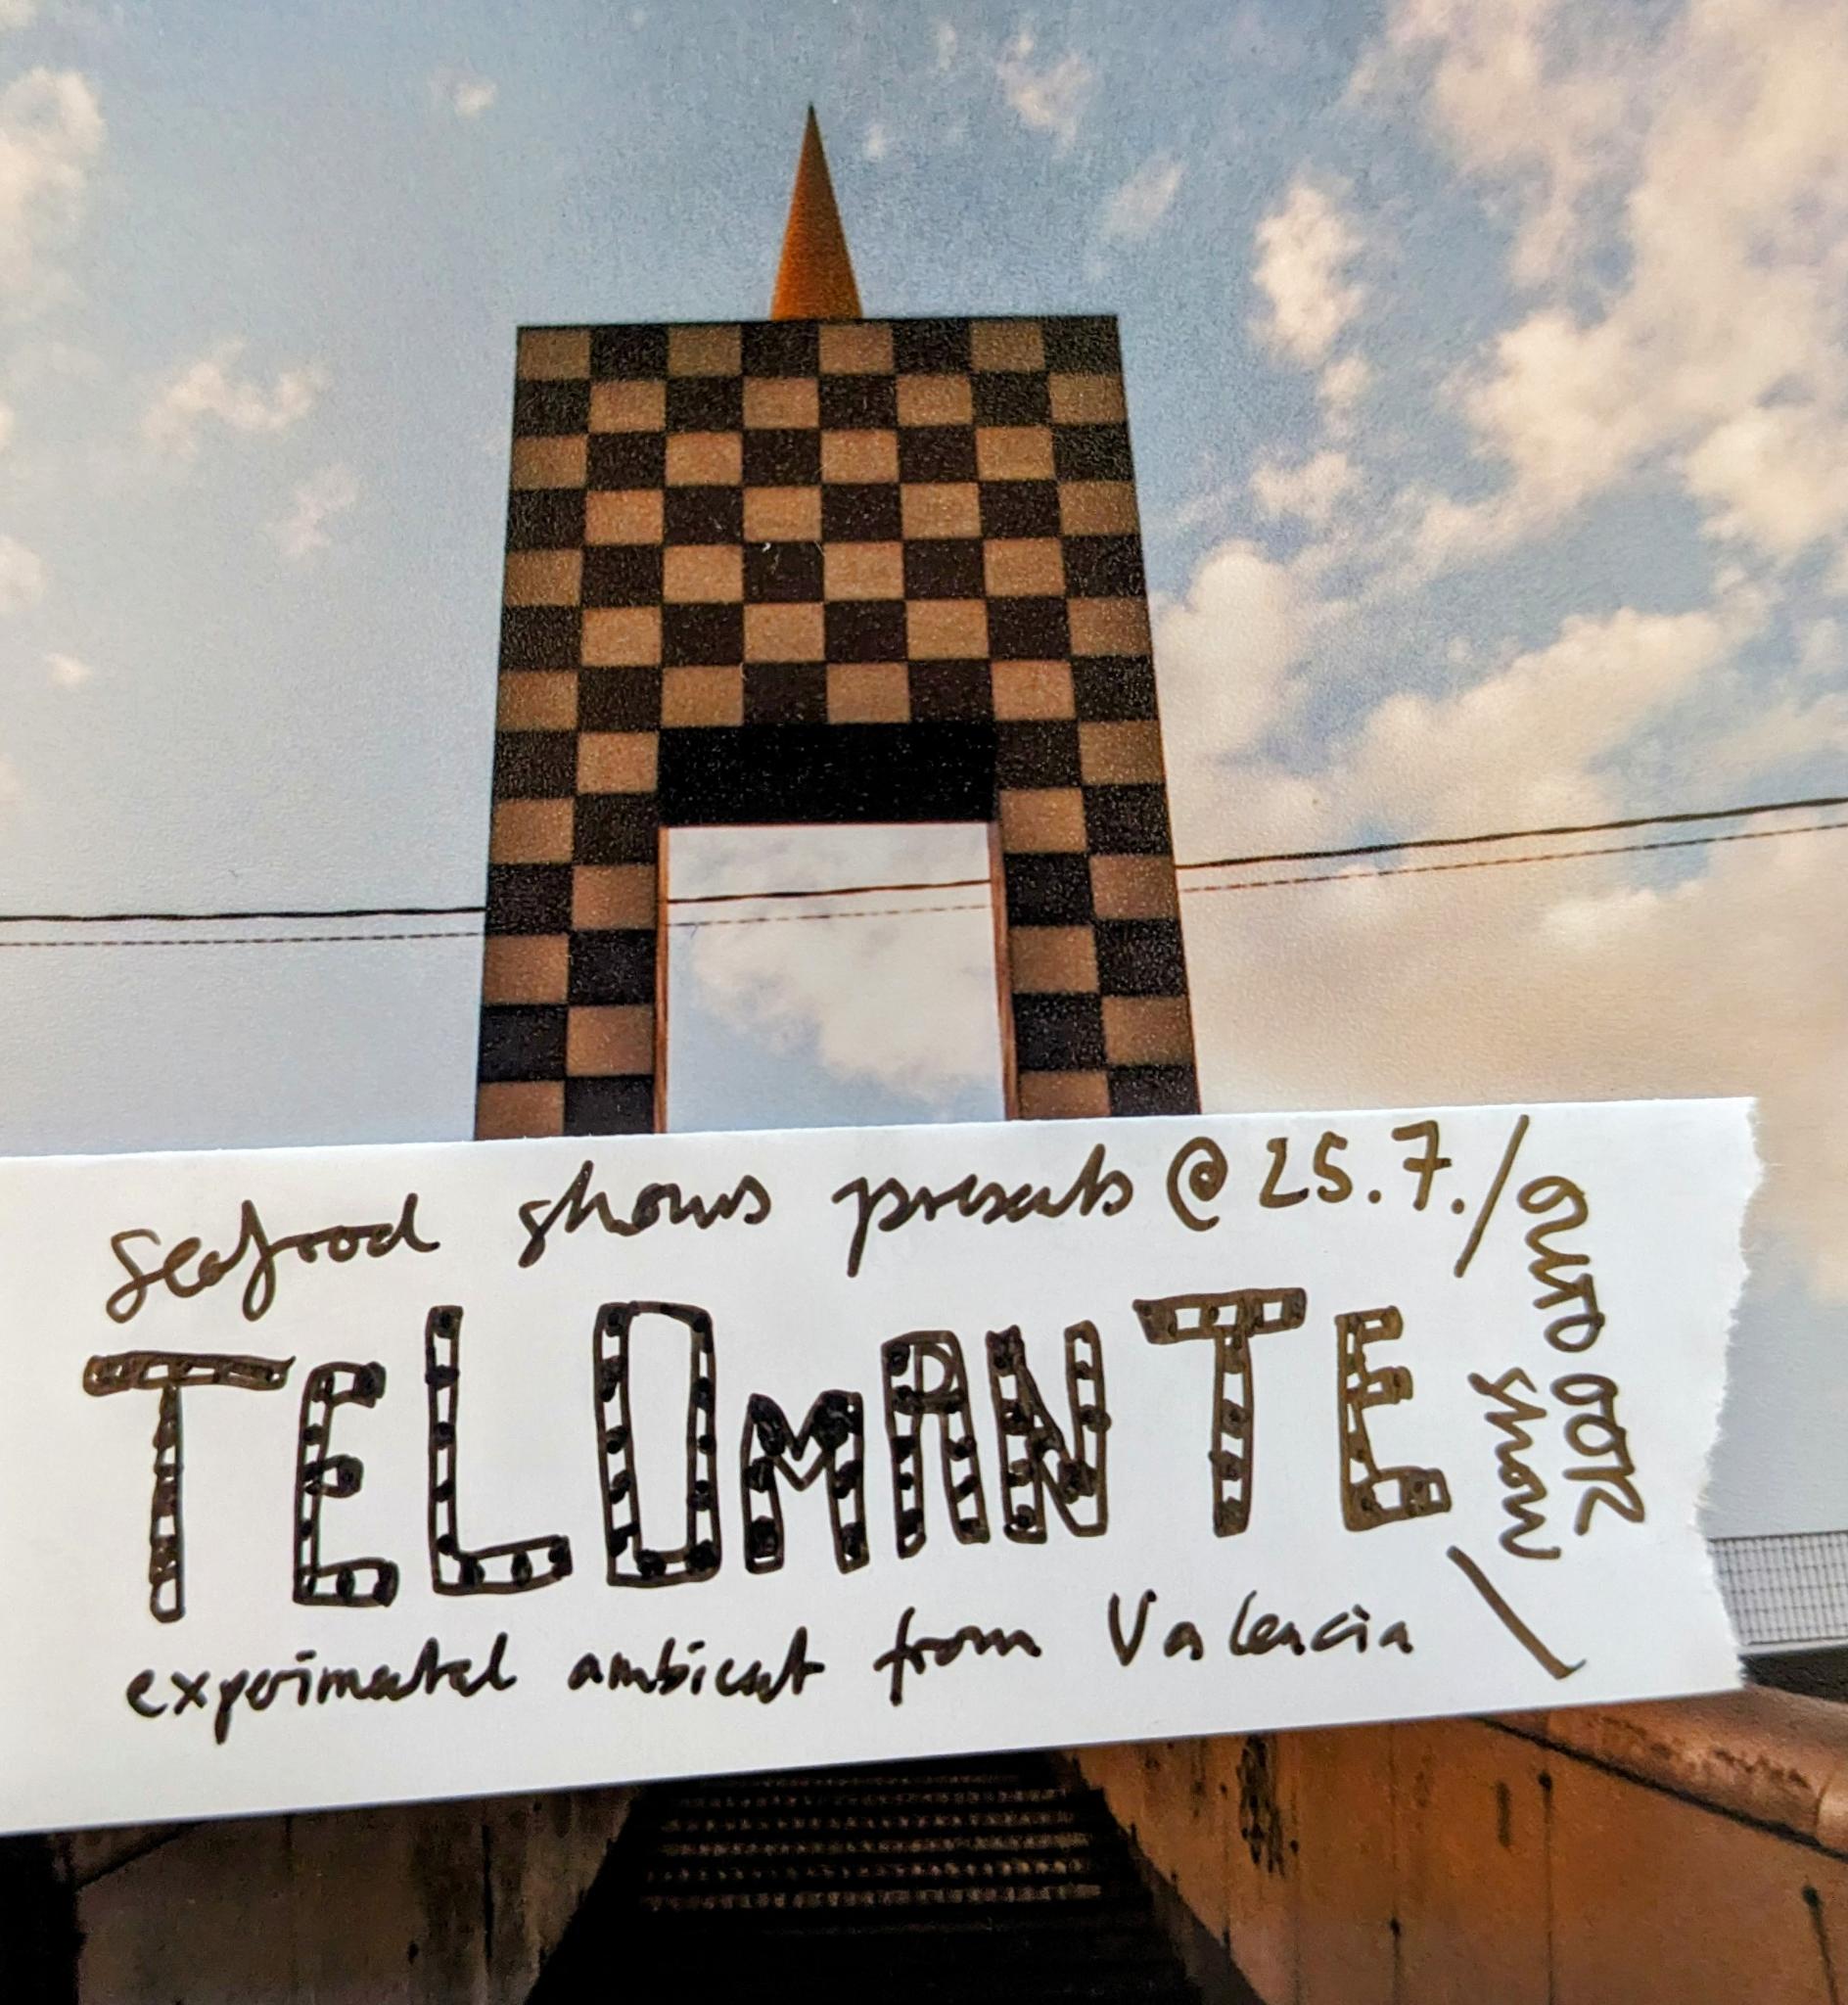 seafood shows presents @ 25.7./
TELOMANTE
experimental ambient from Valencia
OUTDOOR
show /